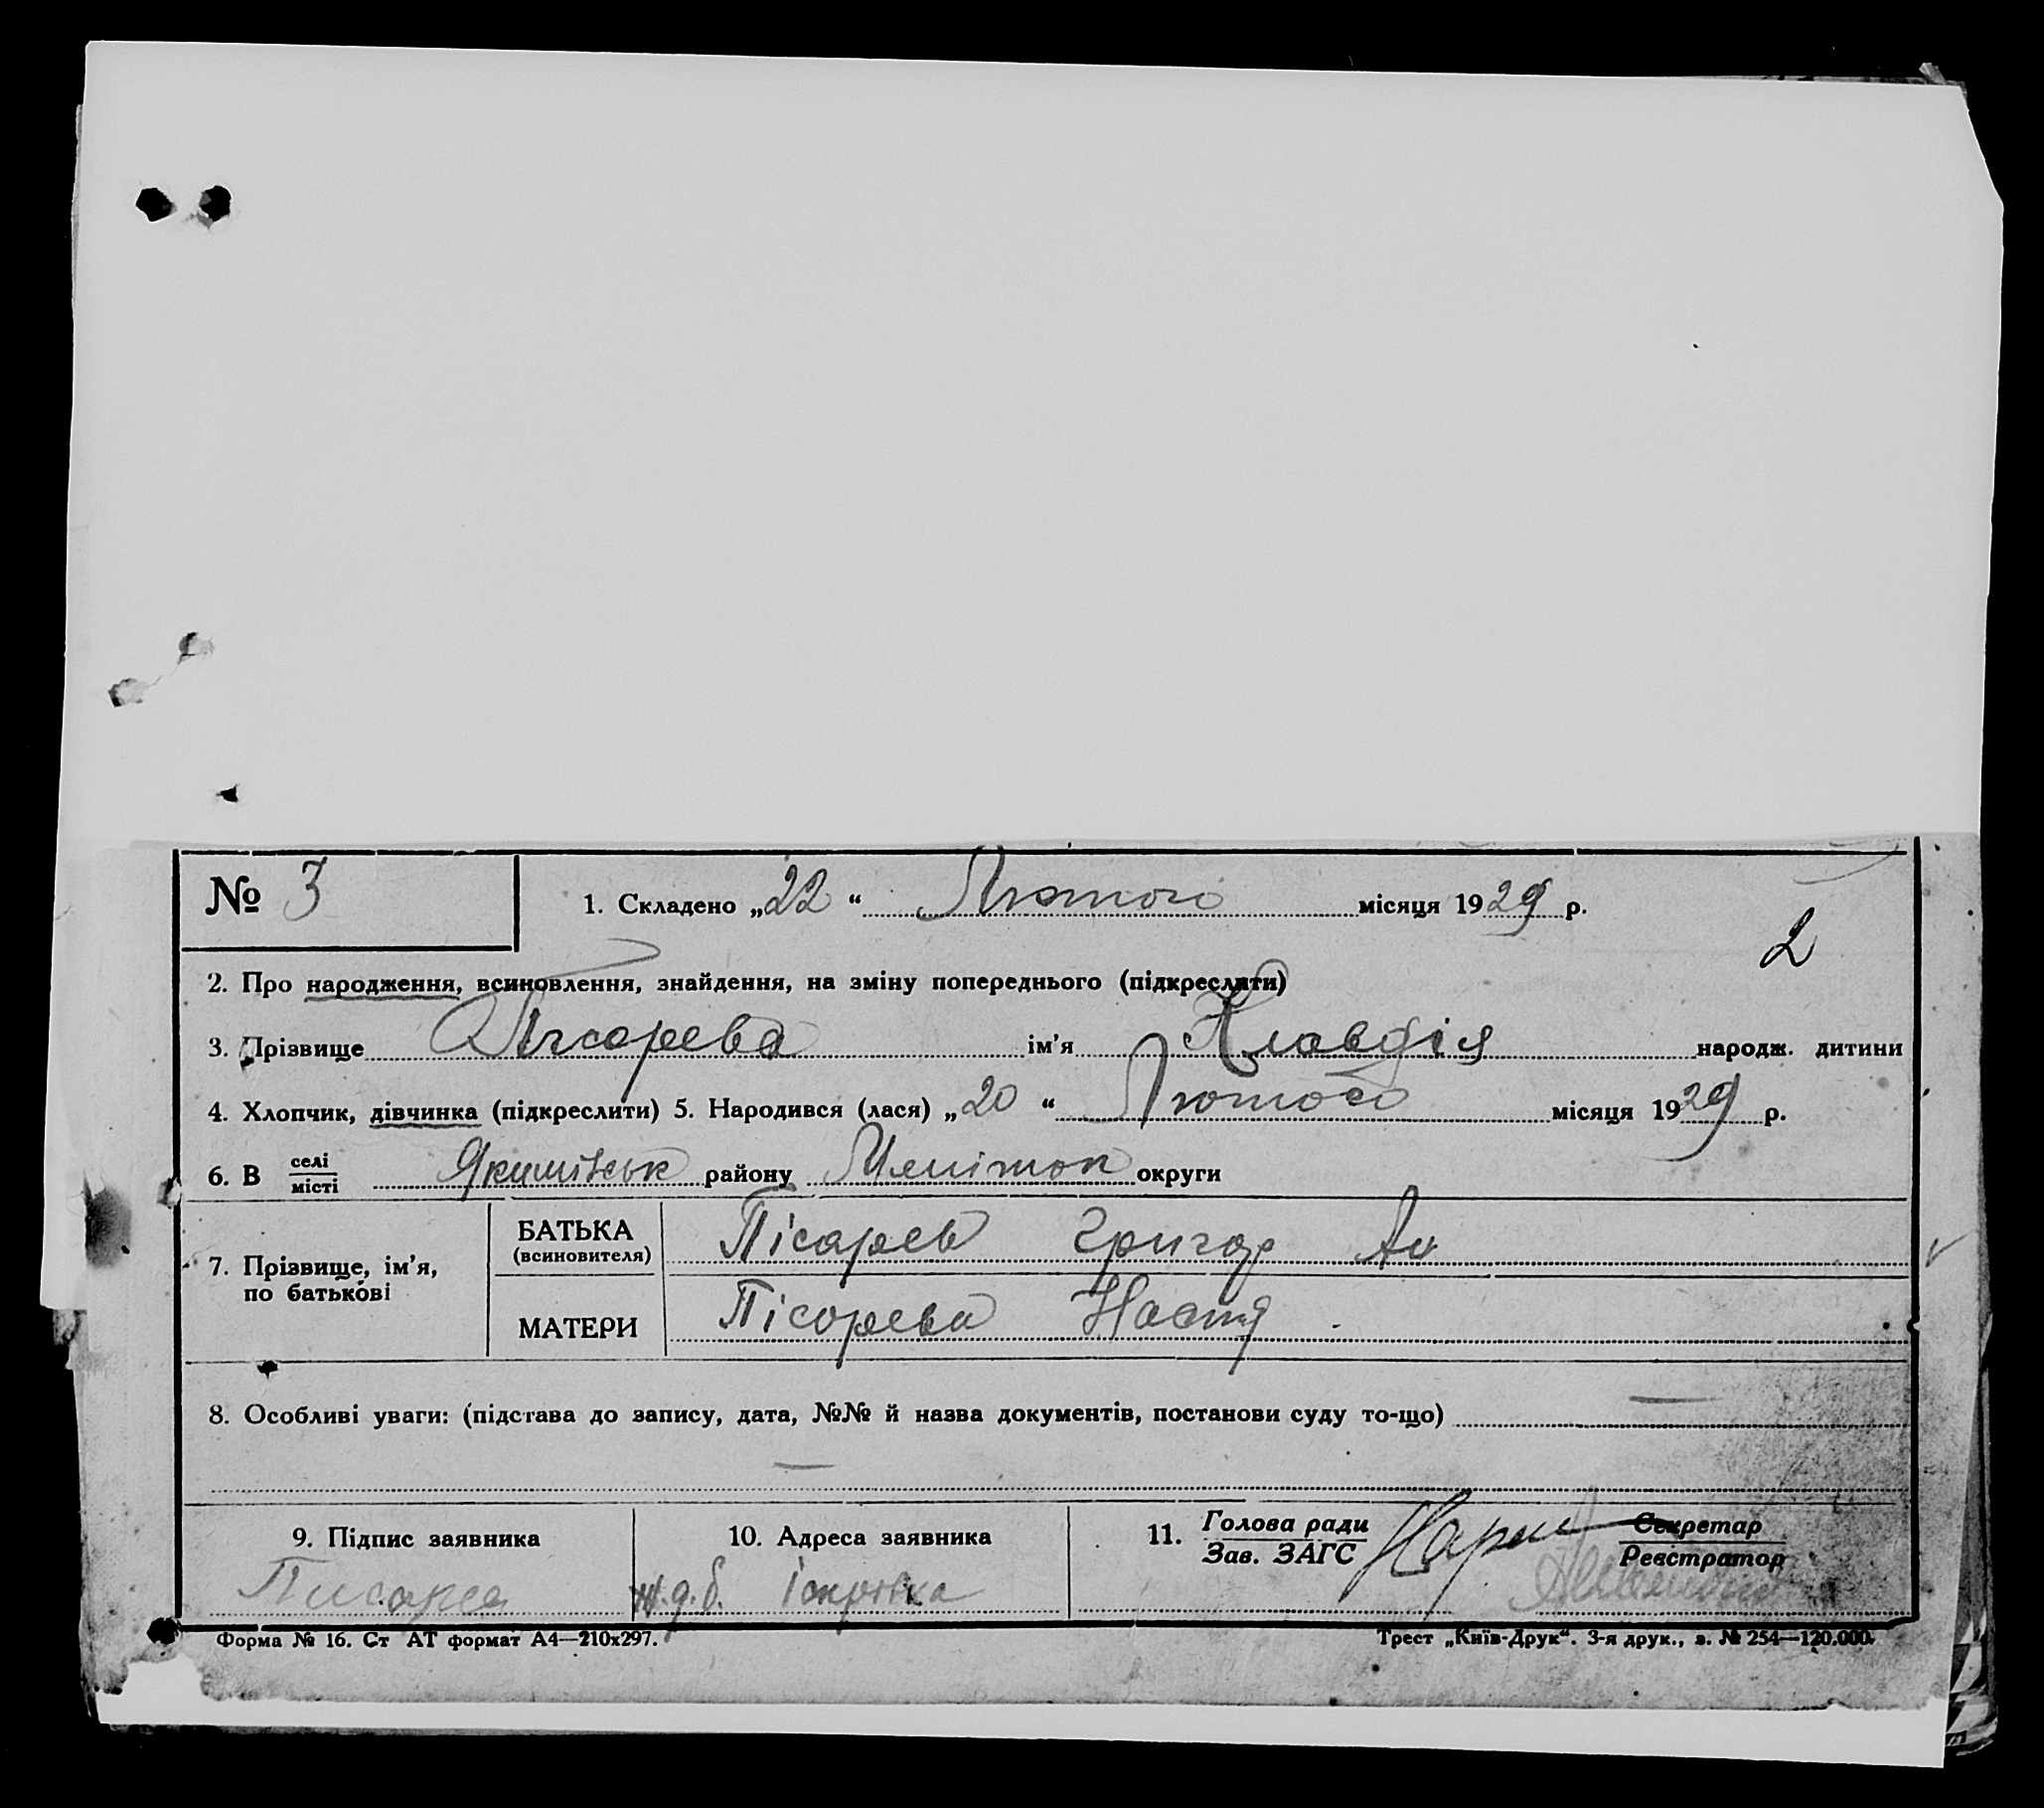 № 3
1. Складено „22“ Лютого місяця 1929 р.
2
2. Про народження, всиновлення, знайдення, на зміну попереднього (підкреслити)
3. Прізвище Пісарева ім'я Клавдія народж. дитини
4. Хлопчик, дівчинка (підкреслити) 5. Народився (лася) „20“ Лютого місяця 1929 р.
6. В селі місті Якимівськ району Мелітоп округи
7. Прізвище, ім'я, по батькові
БАТЬКА (всиновителя) Пісарев Григор Ан
МАТЕРИ Пісорева Настя
8. Особливі уваги: (підстава до запису, дата, №№ й назва документів, постанови суду то-що)
9. Підпис заявника
10. Адреса заявника
11. Голова ради Зав. ЗАГС
Секретар Реєстратор
Писарев
Форма № 16. Ст АТ формат А4—210х297.
Трест „Київ-Друк“. 3-я друк., з. № 254—120.000.